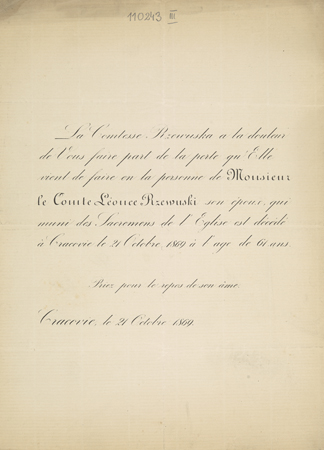 110243 III
La Comtesse Rzewuska a la douleur
de Vous faire part de la perte qu'Elle
vient de faire en la personne de Monsieur
le Comte Léonce Rzewuski son époux, qui
muni des Sacremens de l'Eglise est décédé
à Cracovie le 21 Octobre, 1869 à l'age de 61 ans.
Priez pour le repos de son âme.
Cracovie, le 21 Octobre 1869.